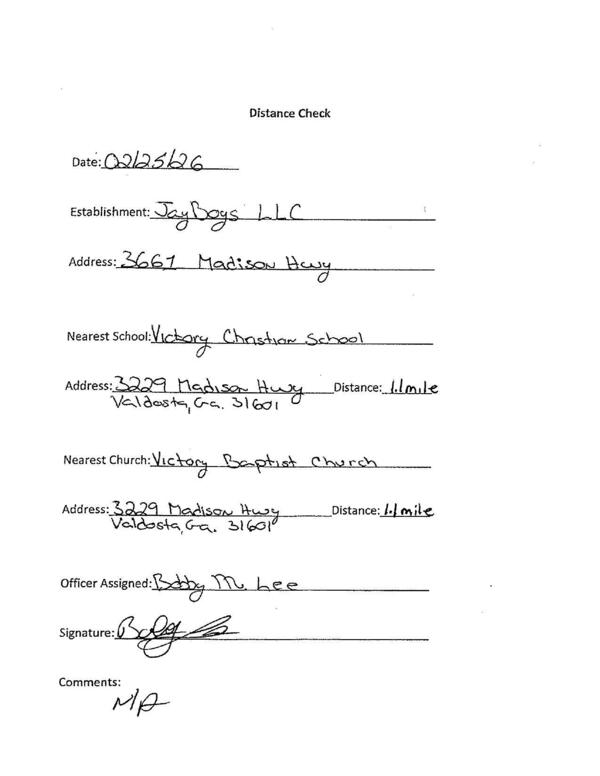 Distance Check
Date: 02/25/26
Establishment: JayBoys LLC
Address: 3661 Madison Hwy
Nearest School: Victory Christian School
Address: 3229 Madison Hwy Distance: 1.1 mile
Valdosta, Ga. 31601
Nearest Church: Victory Baptist Church
Address: 3229 Madison Hwy Distance: 1.1 mile
Valdosta, Ga. 31601
Officer Assigned: Bobby M. Lee
Signature:
Comments:
N/A